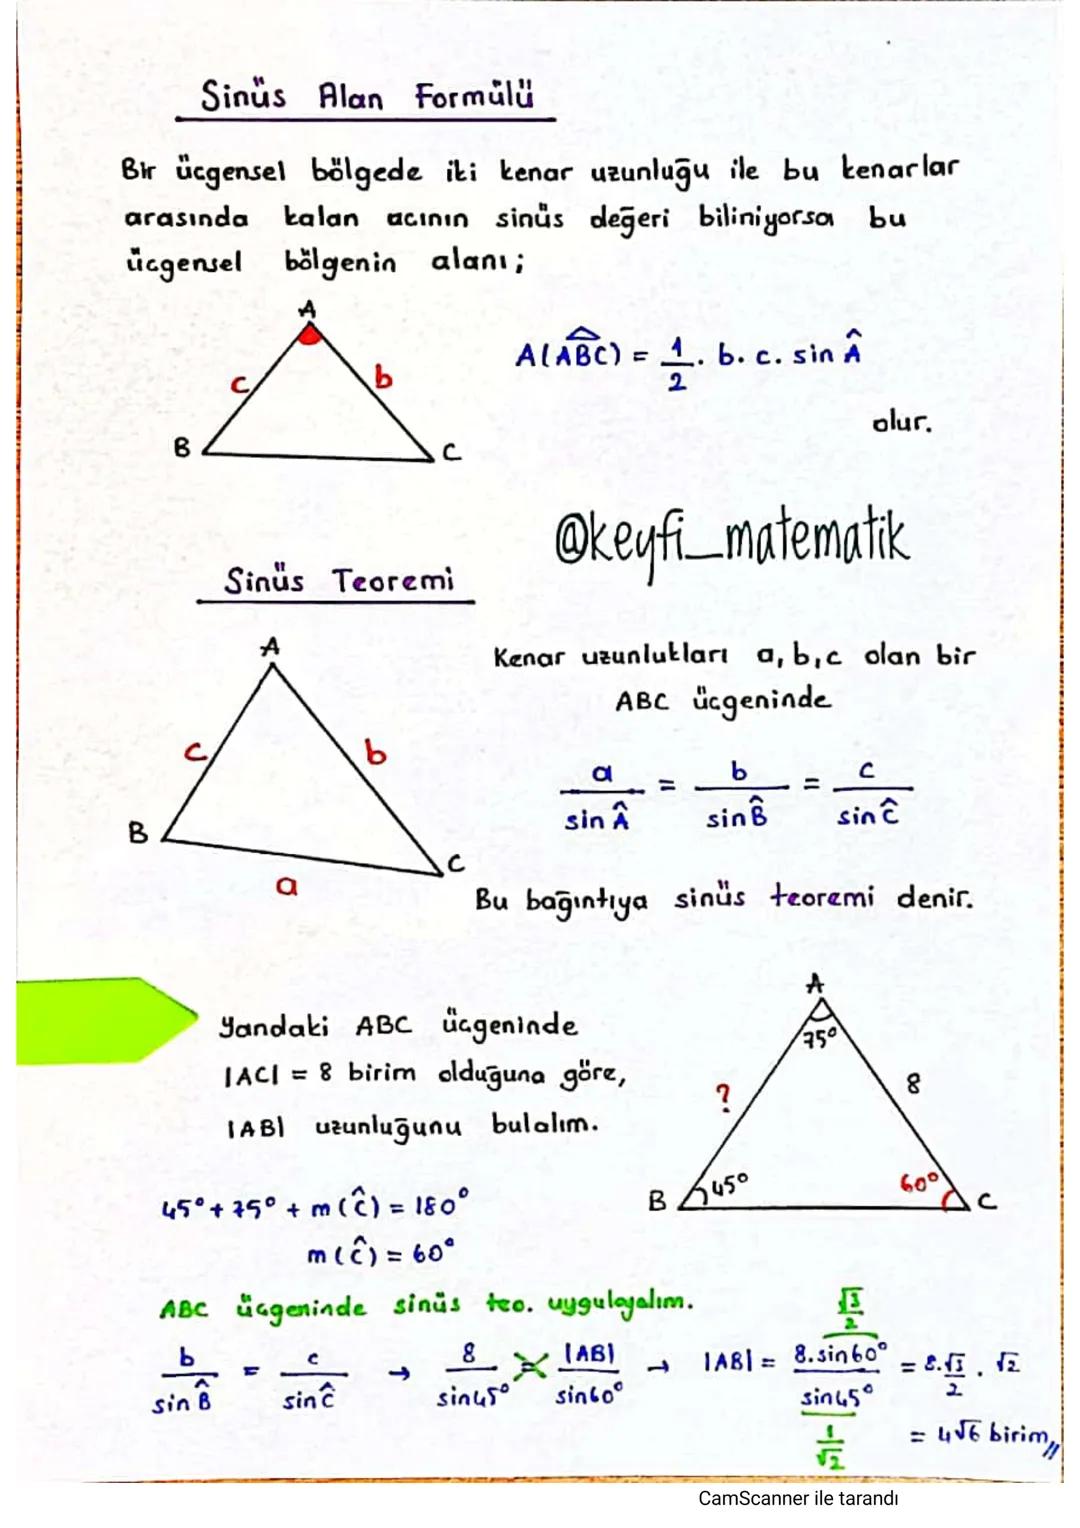 Sinüs Alan Formülü
Bir üçgensel bölgede iki kenar uzunluğu ile bu kenarlar
arasında kalan açının sinüs değeri biliniyorsa bu
üçgensel bölgenin alanı;
A
c
b
B
C
A(ABC) = 1/2 . b. c. sin Â
olur.
@keyfi_matematik
Sinüs Teoremi
A
c
b
B
C
a
Kenar uzunlukları a, b, c olan bir
ABC üçgeninde
a/sin Â = b/sin B̂ = c/sin Ĉ
Bu bağıntıya sinüs teoremi denir.
Yandaki ABC üçgeninde
|AC| = 8 birim olduğuna göre,
|AB| uzunluğunu bulalım.
A
75°
?
8
B
45°
60°
C
45° + 75° + m(Ĉ) = 180°
m(Ĉ) = 60°
ABC üçgeninde sinüs teo. uygulayalım.
b/sin B̂ = c/sin Ĉ → 8/sin45° = |AB|/sin60° → |AB| = 8.sin60°/sin45° = 8.√3/2 . √2
√3/2
1/√2
= 4√6 birim//
CamScanner ile tarandı